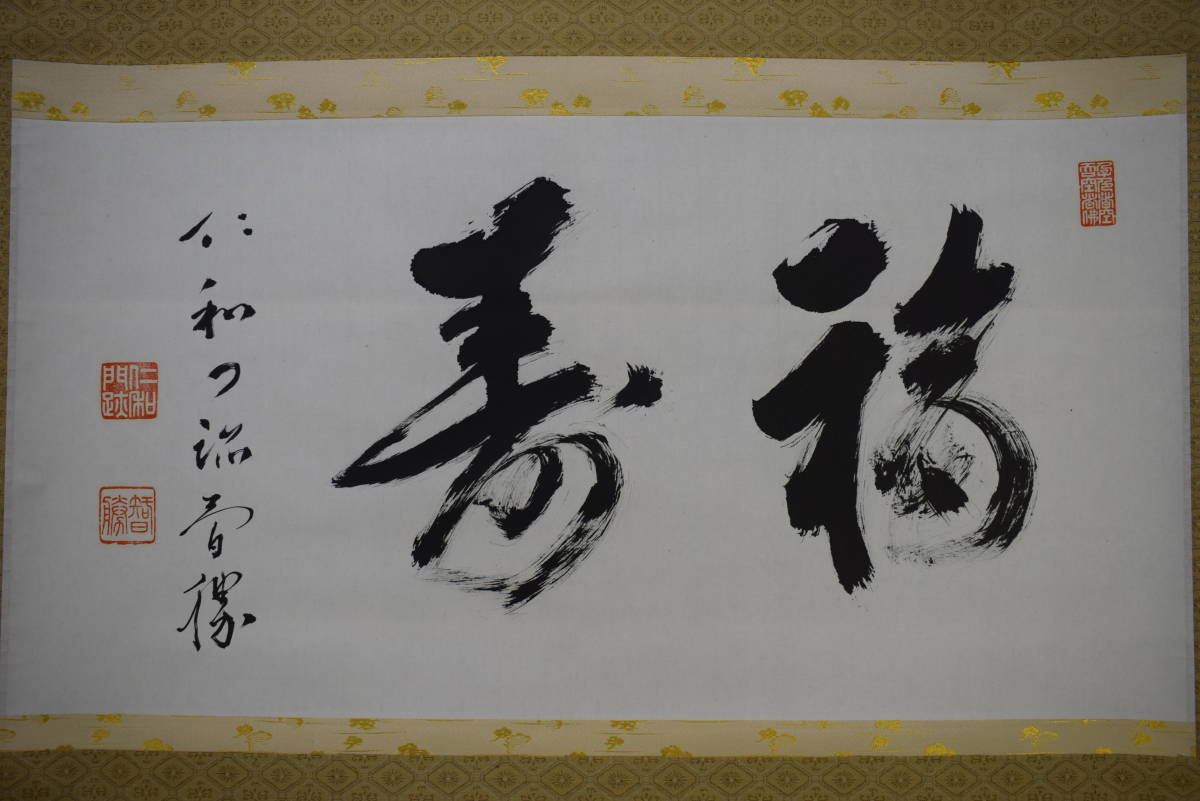 福寿
仁和門跡智勝
仁和門跡
智勝